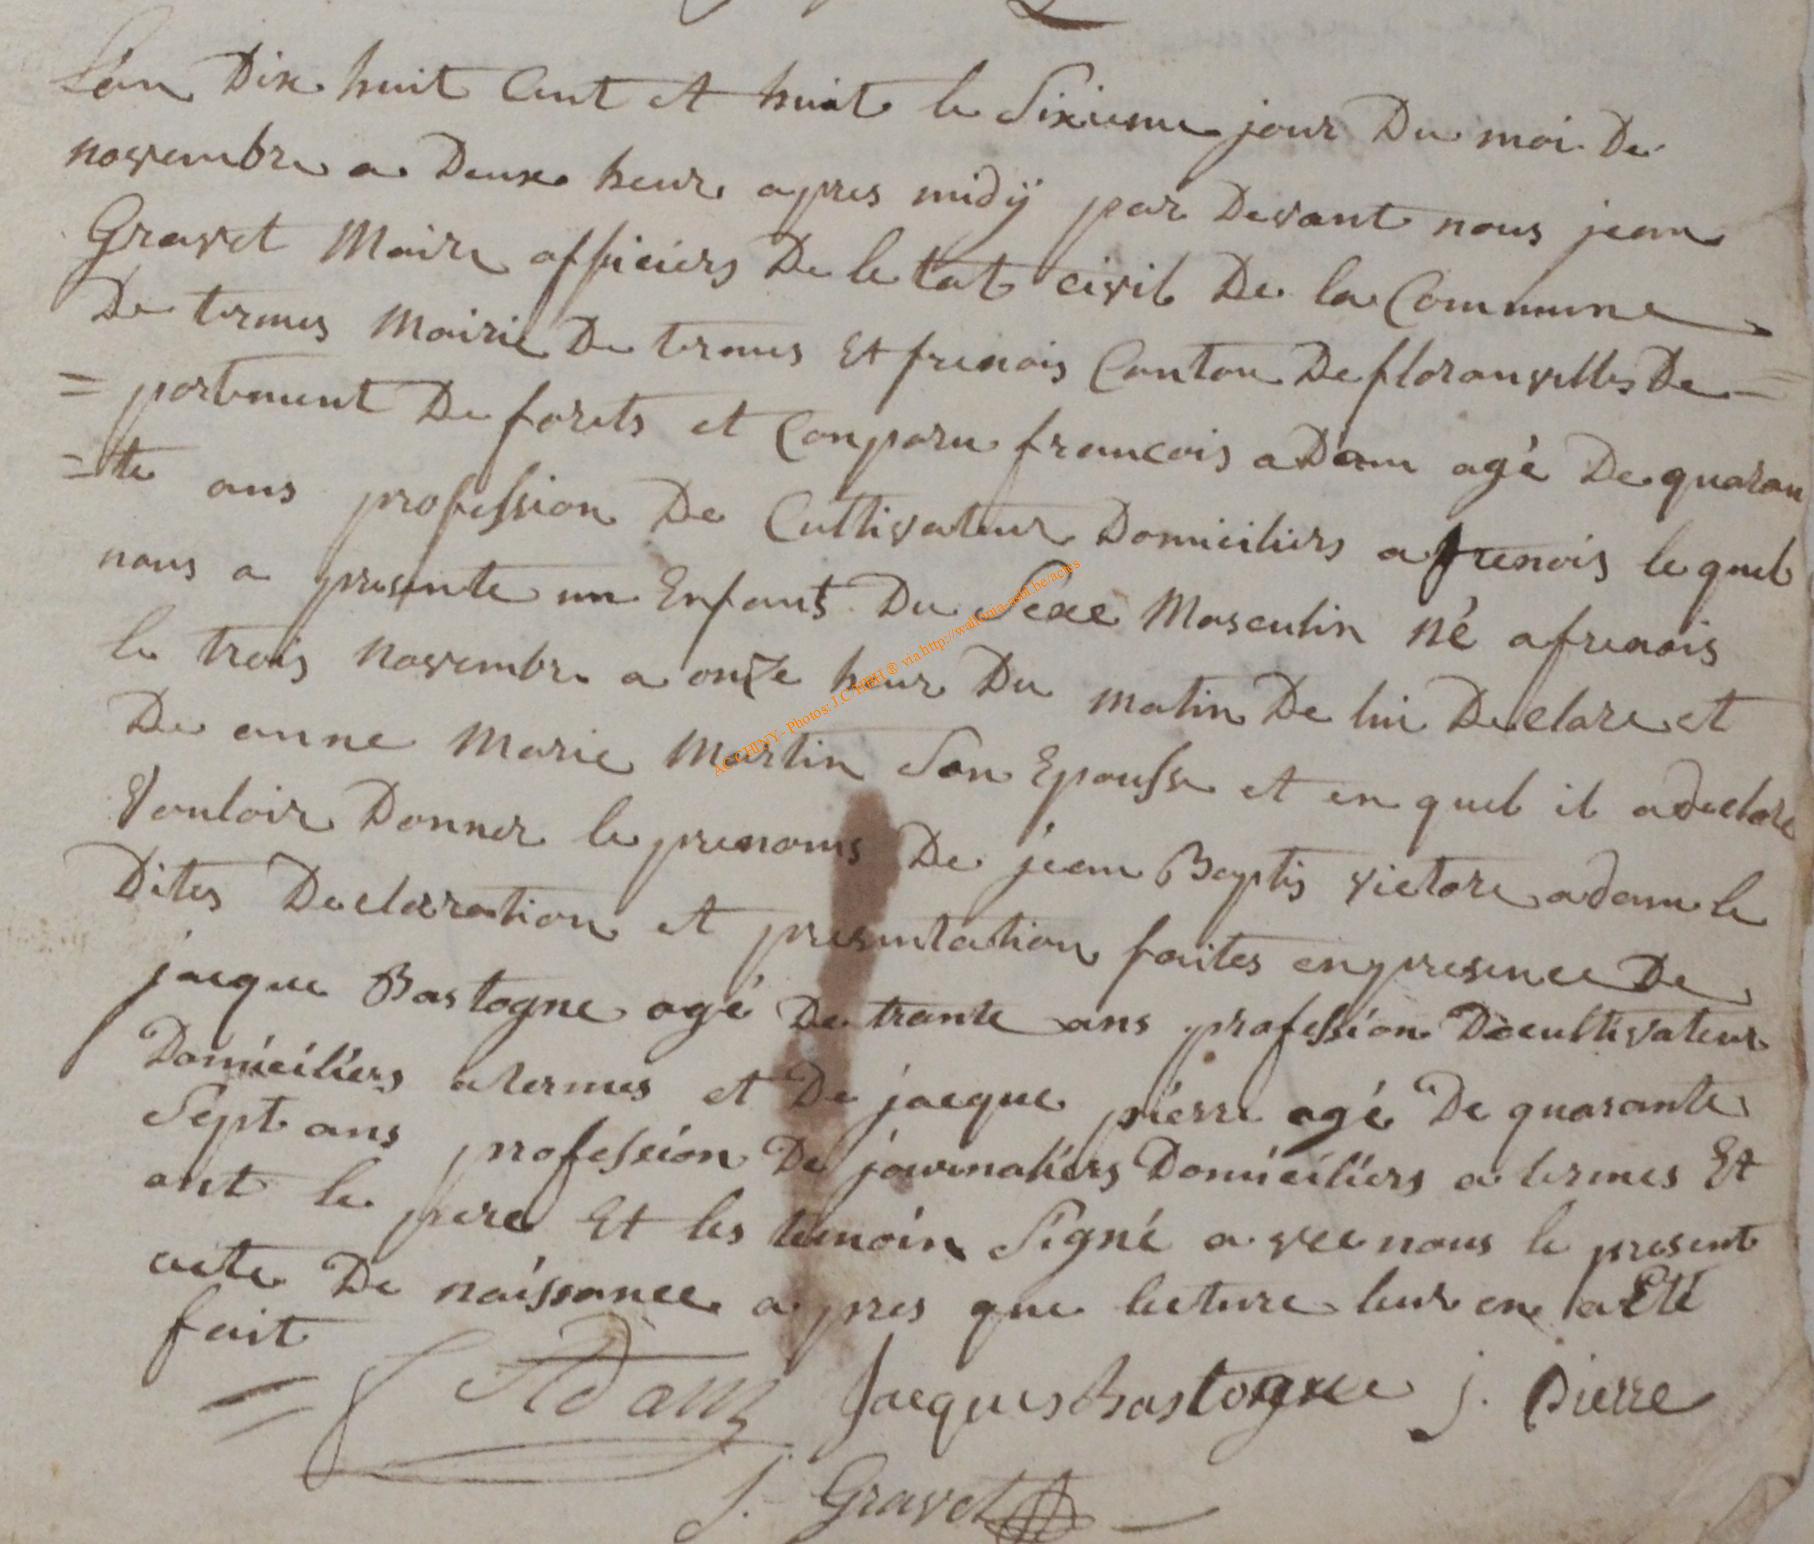 L'an Dix huit Cent et huit le Sixieme jour Du moi De
novembre a Deux heur apres midÿ par Devant nous jean
Gravet Maire officiers De le tat civil De la Commune
De termes Mairie De termes Et frenois Canton De floranvilles De-
= partement De forets et Conparu francois aDam agé De quaran
=te ans profession De Cultivateur Domiciliers a frenois le quel
nous a presente un Enfant Du Sexe Masculin né a frenois
le trois novembre a onze heur Du matin De lui Declare et
De anne Marie Martin Son Epousse et en quel il a declare
Vouloir Donner le prenoms De jean Baptis victore adam le
Dites Declarration et presentation faites en presence De
jacque Bastogne agé De trante ans profession De cultivateur
Domiciliers a termes et De jacque pierre agé De quarante
Sept ans profession De journaliers Domiciliers a termes Et
ont le pere Et les temoin Signé a vec nous le present
acte De naissance a pres que lecture leur en a Eté
fait
Adam Jacques Bastogne j. Pierre
J. Gravet
AC CHINY - Photos: J.C ® via http://wallonia-asbl.be/actes